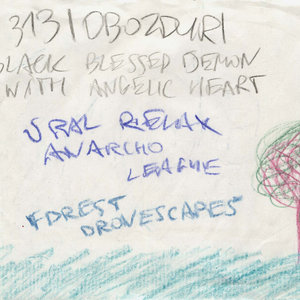 3131 OBOZDURI
BLACK BLESSED DEMON
WITH ANGELIC HEART
URAL RELAX
ANARCHO
LEAGUE
FOREST
DRONESCAPES